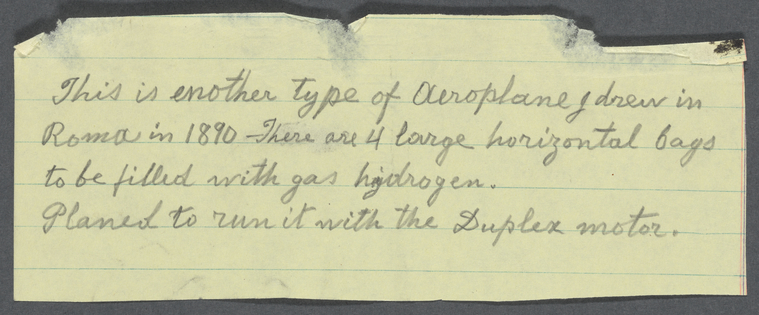 This is enother type of Aeroplane I drew in
Roma in 1890 - There are 4 large horizontal bags
to be filled with gas hydrogen.
Planed to run it with the Duplex motor.